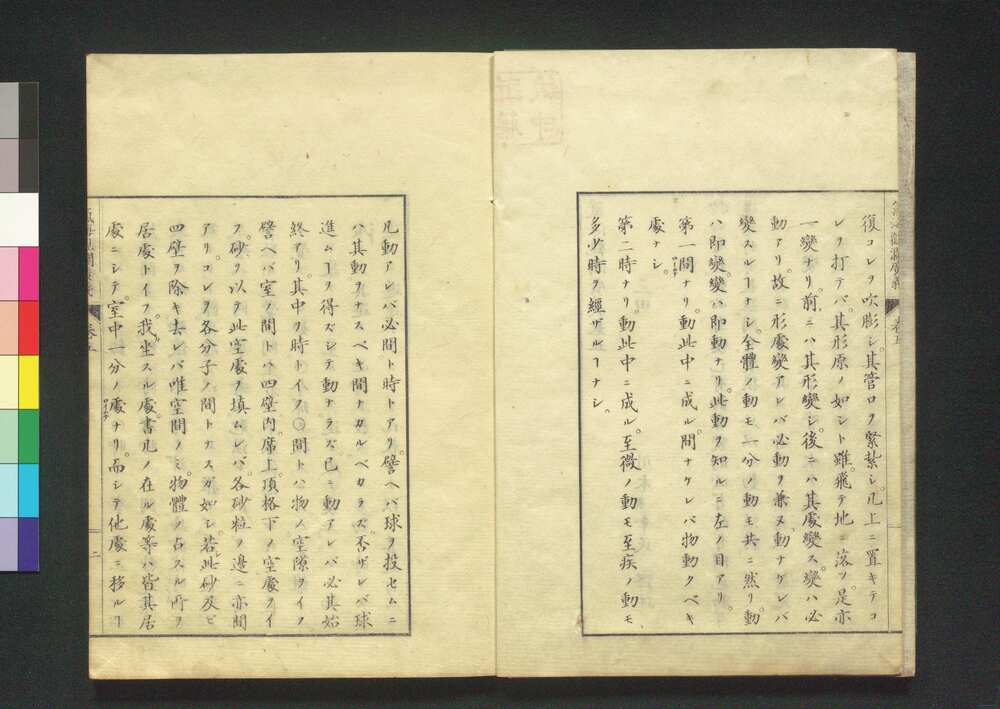 復コレヲ吹膨シ。其管口ヲ緊紮シ。几上ニ置キテコ
レヲ打テバ。其形原ノ如シト雖。飛テ地ニ落ツ。是亦
一變ナリ。前ニハ其形變シ。後ニハ其處變ス。變ハ必
動アリ。故ニ形處變アレバ必動ヲ兼ヌ。動ナケレバ
變スルヿナシ。全體ノ動モ一分ノ動モ共ニ然リ。動
ハ即變。變ハ即動ナリ。此動ヲ知ルニ左ノ目アリ。
第一間ナリ。動此中ニ成ル。間ナケレバ物動クベキ
處ナシ。
第二時ナリ。動此中ニ成ル。至微ノ動モ至疾ノ動モ
多少時ヲ經ザルヿナシ。
卷五
凡動アレバ必間ト時トアリ。譬ヘバ球ヲ投セムニ
ハ其動ヲナスベキ間ナカルベカラズ。否ザレバ球
進ムヿヲ得ズシテ動ナラズ。已ニ動アレバ必其始
終アリ。其中ヲ時トイフ。〇間トハ物ノ空隙ヲイフ
譬ヘバ室ノ間トハ四壁内。席上。頂格下ノ空處ヲイ
フ。砂ヲ以テ此空處ヲ填ムレバ。各砂粒ノ邊ニ亦間
アリ。コレヲ各分子ノ間トナスガ如シ。若此砂及ビ
四壁ヲ除キ去レバ唯空間ノミ。物體ノ占スル所ヲ
居處トイフ。我坐スル處。書几ノ在ル處等ハ皆其居
處ニシテ。室中一分ノ處ナリ。而シテ他處ニ移ルヿ
卷五
二